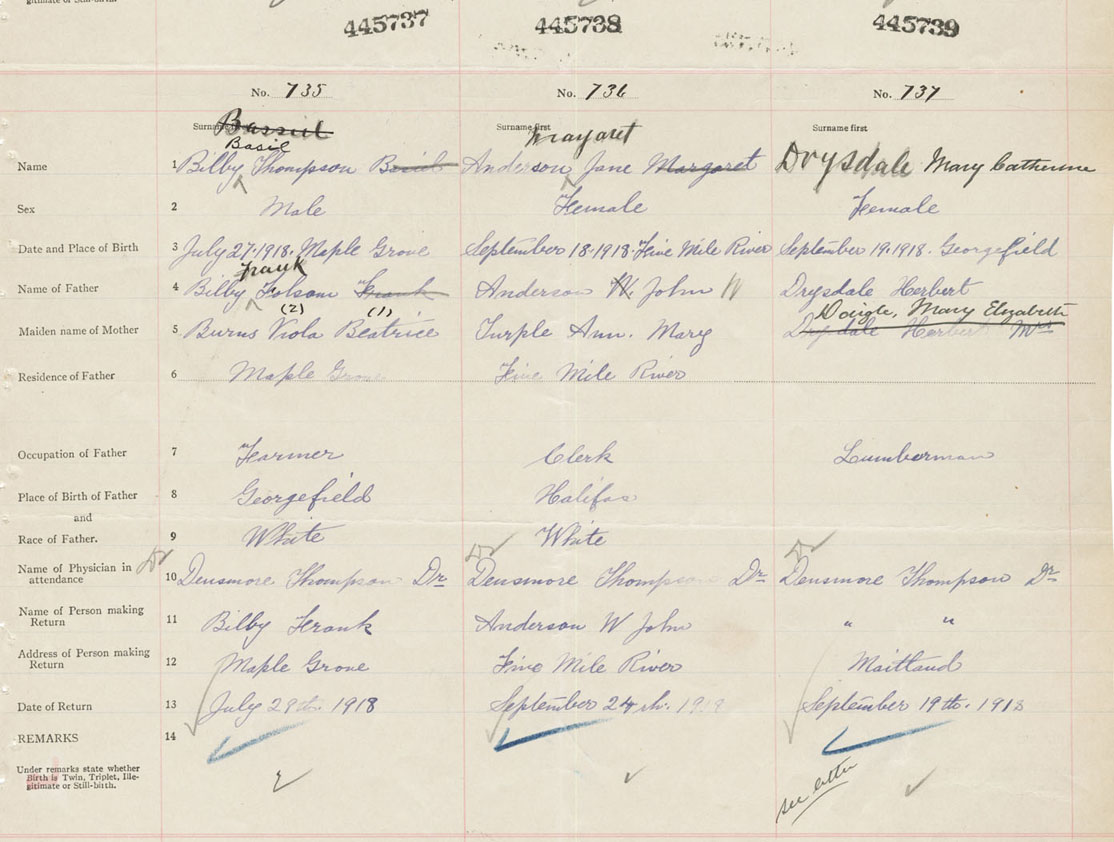 gitimate or Still-birth.
445737 445738 445739
No. 735 No. 736 No. 737
Surname first Bassiul Surname first Margaret Surname first
Basil
Name 1 Bilby Thompson Basil Anderson Jane Margaret Drysdale Mary Catherine
Sex 2 Male Female Female
Date and Place of Birth 3 July 27.1918. Maple Grove September 18.1918. Five Mile River September 19.1918. Georgefield
Frank
Name of Father 4 Bilby Folsom Frank Anderson W. John W Drysdale Herbert
(2) (1) Daigle, Mary Elizabeth
Maiden name of Mother 5 Burns Viola Beatrice Turple Ann. Mary Drysdale Herbert Mrs
Residence of Father 6 Maple Grove Five Mile River
Occupation of Father 7 Farmer Clerk Lumberman
Place of Birth of Father 8 Georgefield Halifax
and
Race of Father. 9 White White
Name of Physician in
attendance 10 Densmore Thompson Dr Densmore Thompson Dr Densmore Thompson Dr
Name of Person making
Return 11 Bilby Frank Anderson W John " "
Address of Person making
Return 12 Maple Grove Five Mile River Maitland
Date of Return 13 July 29th. 1918 September 24th. 1918 September 19th. 1918
REMARKS 14
Under remarks state whether
Birth is Twin, Triplet, Ille-
gitimate or Still-birth.
see letter